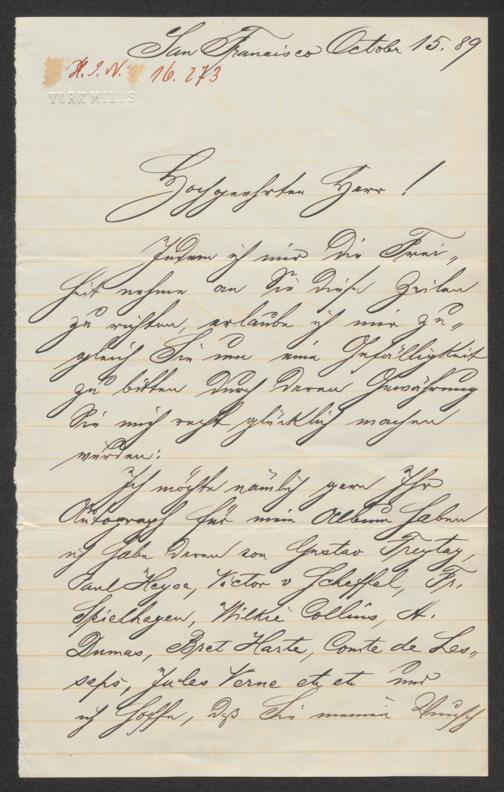 San Francisco Octobr 15. 89
H. I. N. 16. 273
YORK MILLS
Hochgeehrter Herr!
Indem ich mir die Frei„
heit nehme an Sie diese Zeilen
zu richten, erlaube ich mir zu„
gleich Sie um eine Gefälligkeit
zu bitten durch deren Gewährung
Sie mich recht glücklich machen
würden:
Ich möchte nämlich gern Ihr
Autograph für mein Album haben
ich habe deren von Gustav Freytag,
Paul Heyse, Victor v Scheffel, Fr.
Spielhagen, Wilkie Collins, A.
Dumas, Bret Harte, Comte de Les„
seps, Jules Verne etc etc und
ich hoffe, daß Sie meinen Wunsch